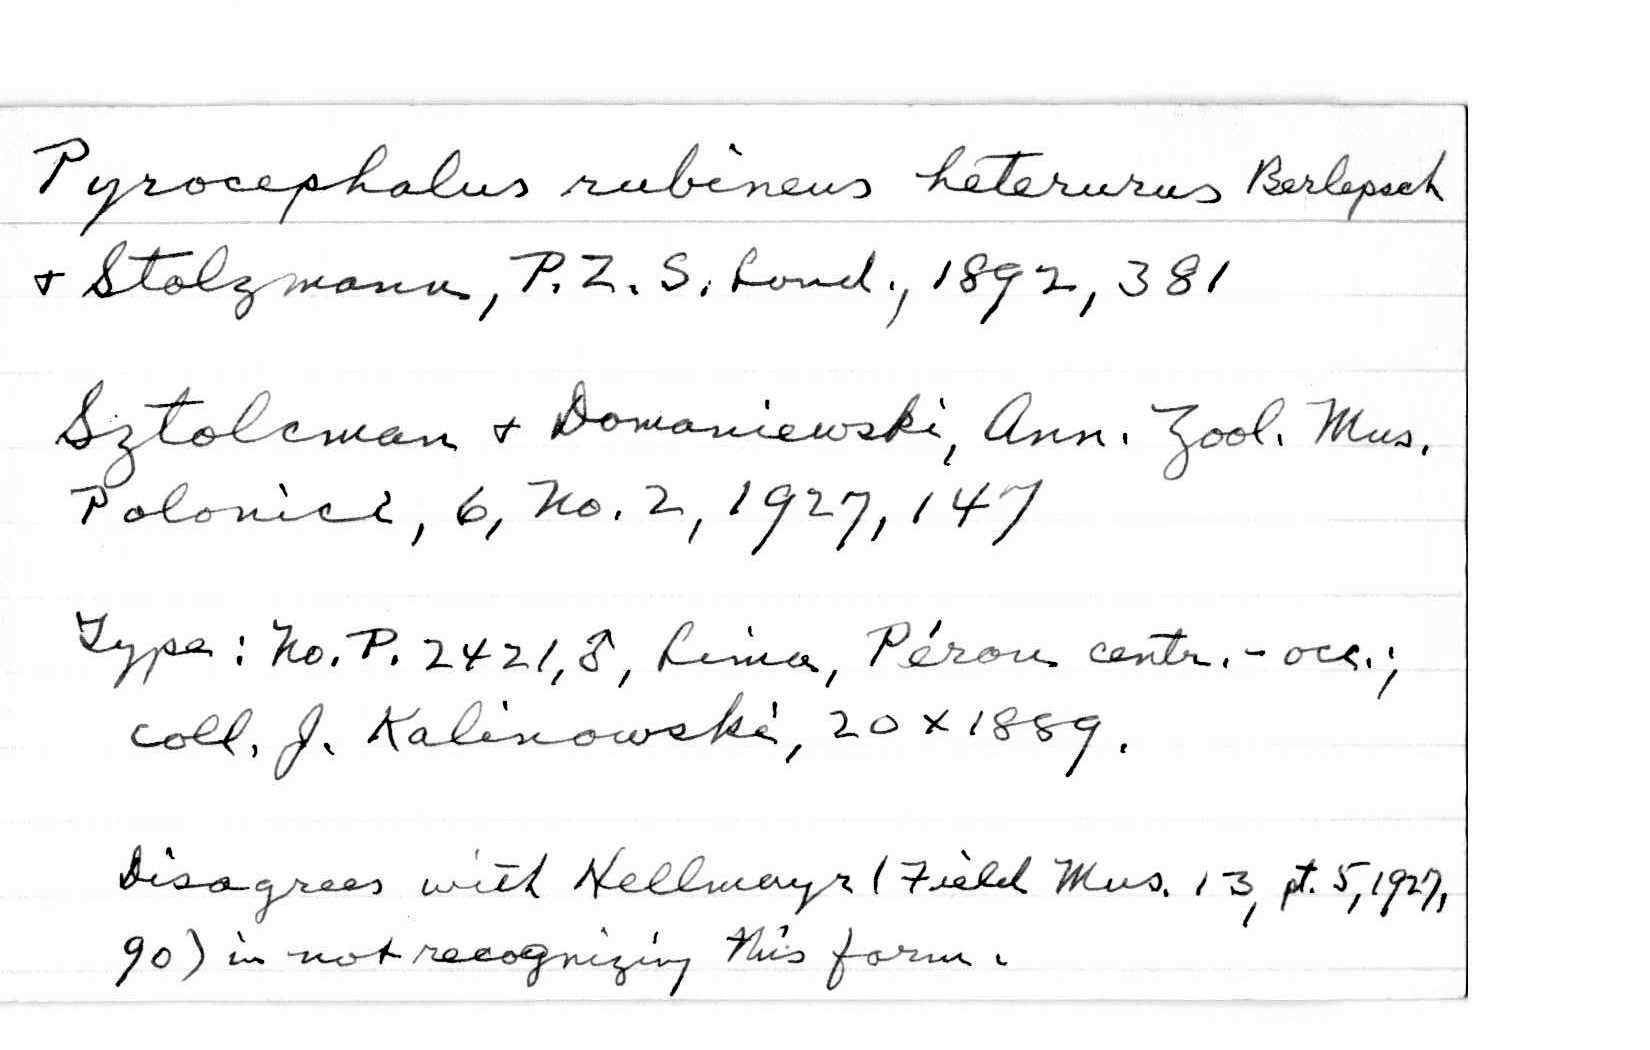 Pyrocephalus rubineus heterurus Berlepsch
& Stolzmann, P. Z. S. Lond., 1892, 381
Sztolcman & Domaniewski, Ann. Zool. Mus.
Polonici, 6, No. 2, 1927, 147
Type: No. P. 2421, ♂, Lima, Pérou centr.-occ.;
coll. J. Kalinowski, 20 X 1889.
Disagrees with Hellmayr (Field Mus. 13, pt. 5, 1927,
90) in not recognizing this form.